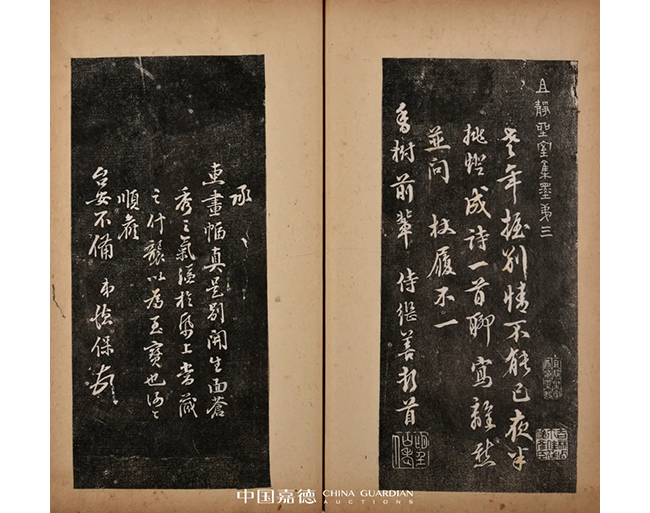 且静坐室集墨弟三
老年握别情不能已夜半
挑燈成诗一首聊寫離愁
並问 杖履不一
香樹前輩 侍继善頓首
承
惠畫幅真是别開生面蒼
秀之氣溢於紙上当藏
之什襲以為至寶也泐之
順候
台安不備 弟 保
中国嘉德 CHINA GUARDIAN
AUCTIONS